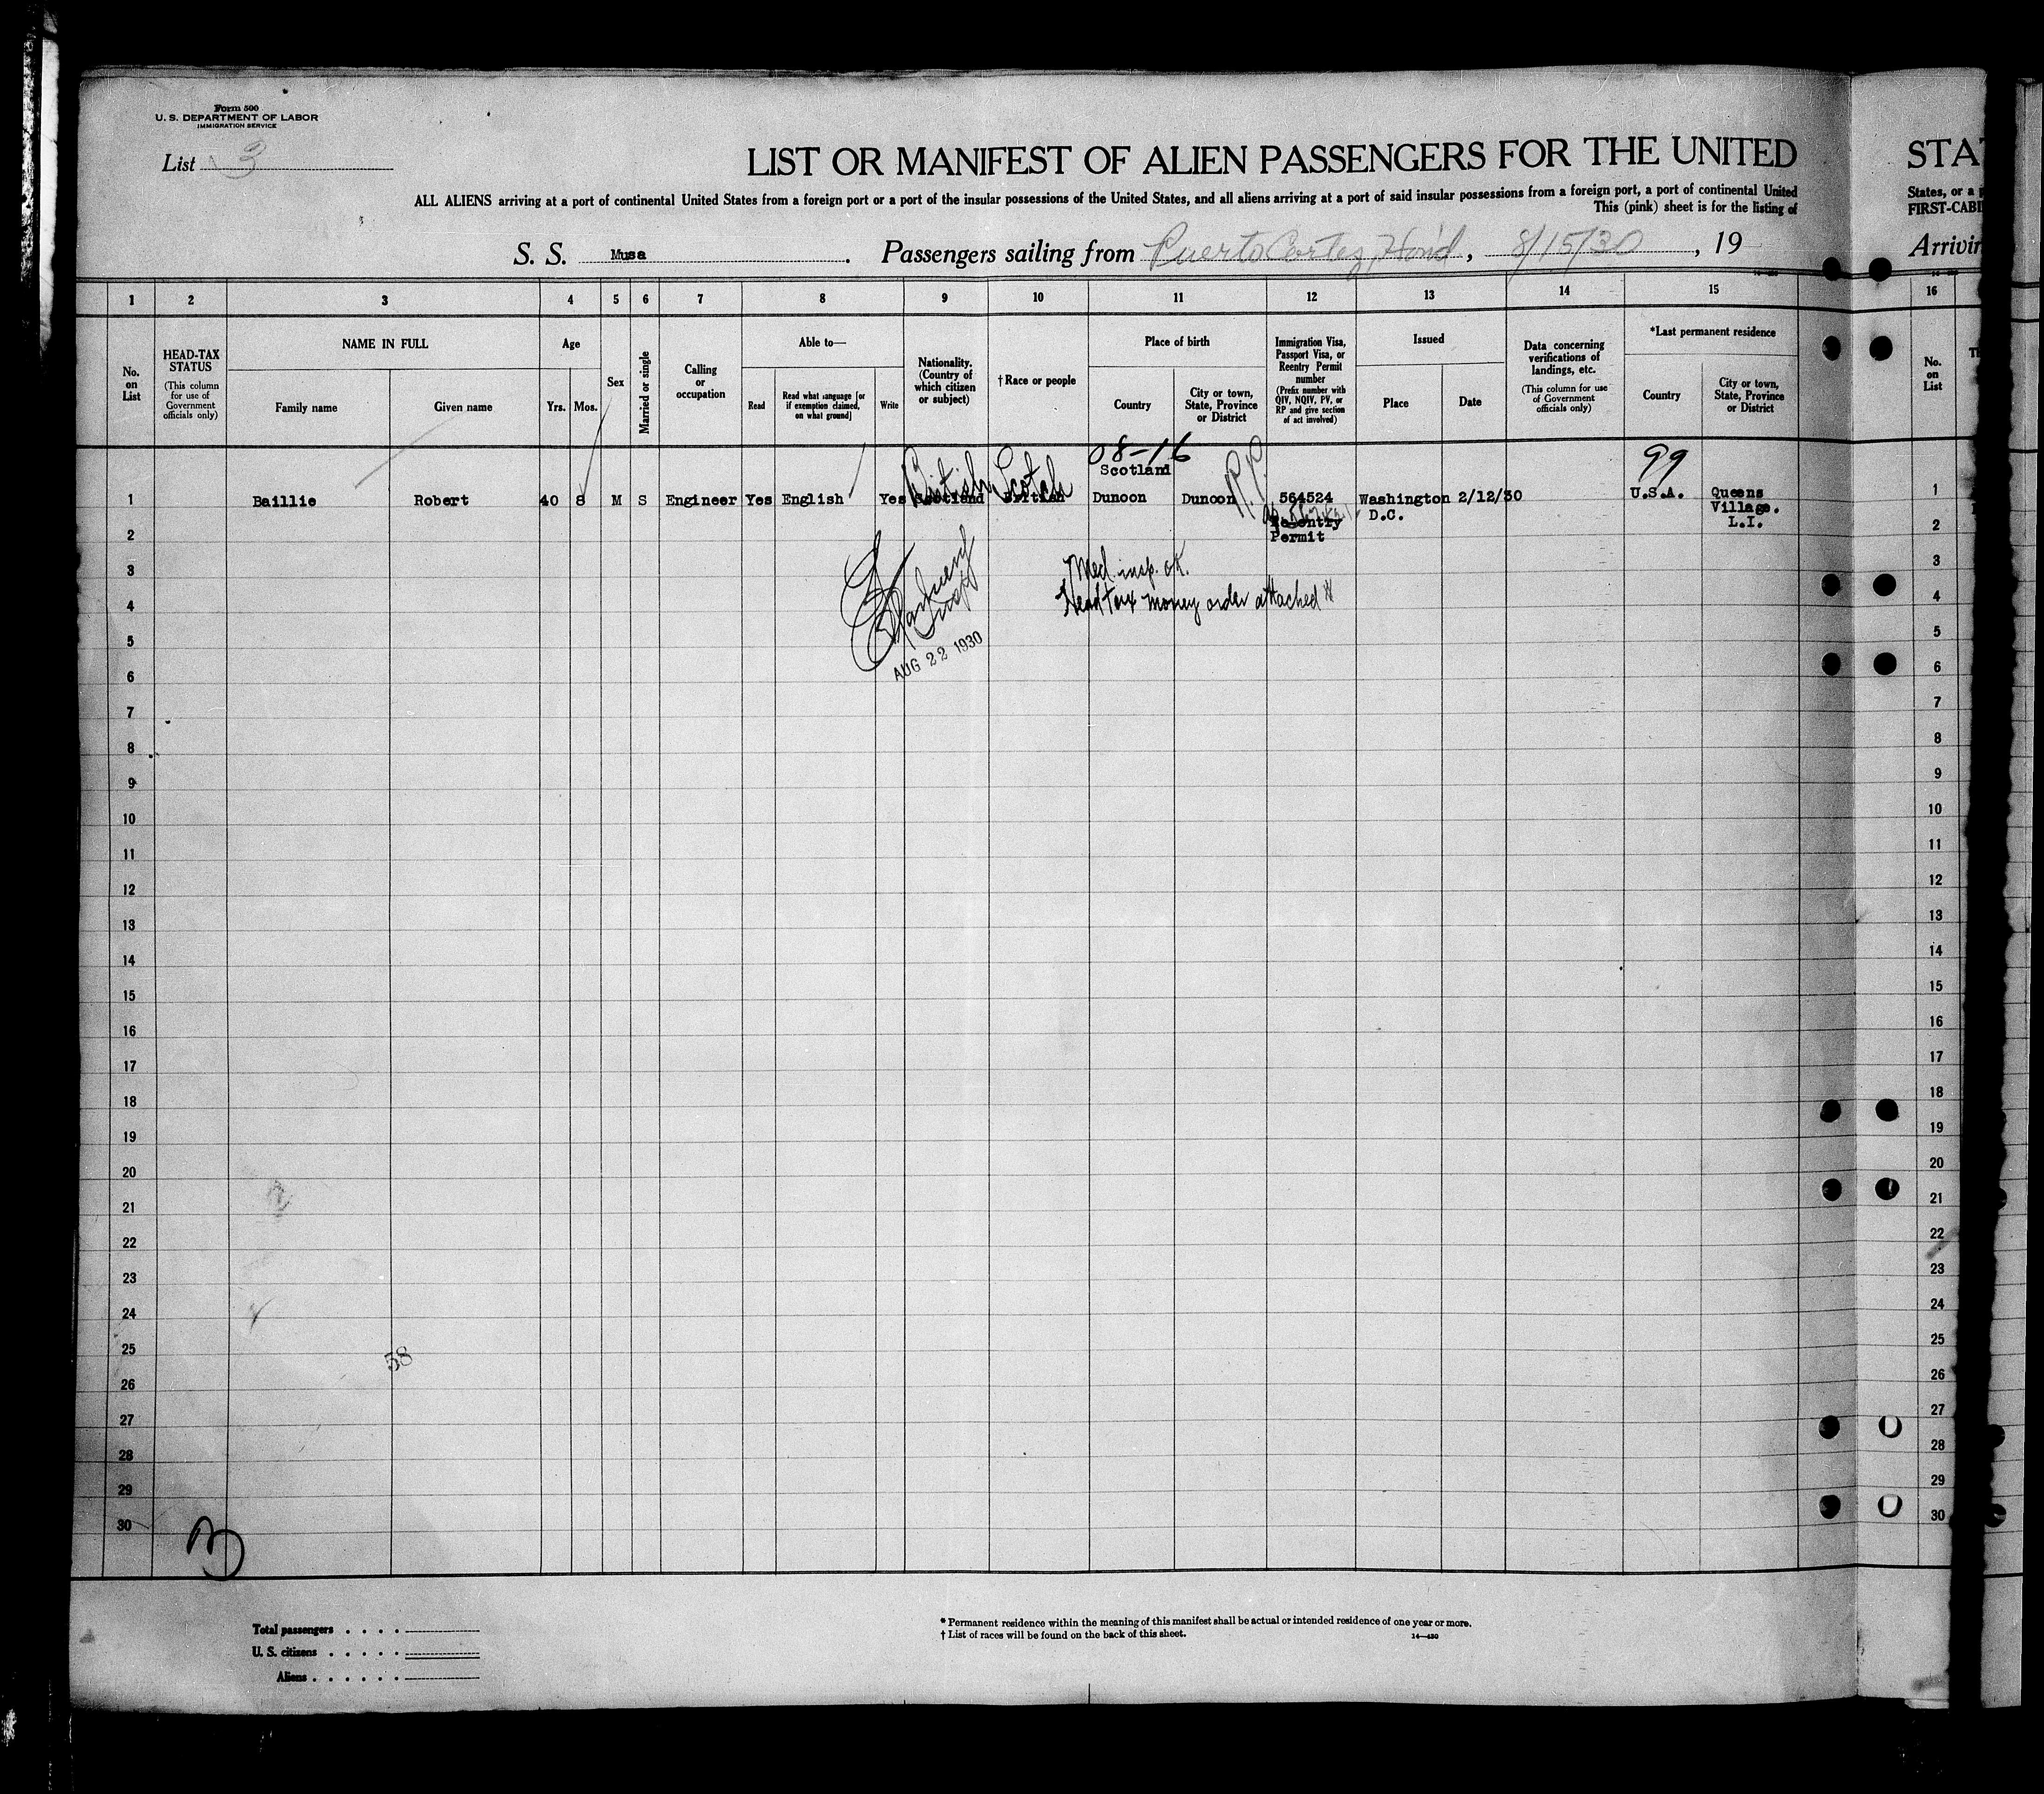 Form 500
U. S. DEPARTMENT OF LABOR
IMMIGRATION SERVICE
List 3
LIST OR MANIFEST OF ALIEN PASSENGERS FOR THE UNITED
ALL ALIENS arriving at a port of continental United States from a foreign port or a port of the insular possessions of the United States, and all aliens arriving at a port of said insular possessions from a foreign port, a port of continental United
This (pink) sheet is for the listing of
S. S. Musa. Passengers sailing from Puerto Cortez, Hond, 8/15/30, 19
STA
States, or a
FIRST-CABI
Arrivin
1 2 3 4 5 6 7 8 9 10 11 12 13 14 15 16
No. on List
HEAD-TAX STATUS
(This column for use of Government officials only)
NAME IN FULL
Family name
Given name
Age
Yrs.
Mos.
Sex
Married or single
Calling or occupation
Able to—
Read
Read what language [or if exemption claimed, on what ground]
Write
Nationality. (Country of which citizen or subject)
†Race or people
Place of birth
Country
City or town, State, Province or District
Immigration Visa, Passport Visa, or Reentry Permit number
(Prefix number with QIV, NQIV, PV, or RP and give section of act involved)
Issued
Place
Date
Data concerning verifications of landings, etc.
(This column for use of Government officials only)
*Last permanent residence
Country
City or town, State, Province or District
No. on List
08-16
99
Scotland
British Scotch
R.P.
1 Baillie Robert 40 8 M S Engineer Yes English Yes Scotland British Dunoon Dunoon 564524 Washington 2/12/30 U.S.A. Queens 1
D.C. Village.
Re-entry L.I.
2 Permit 2
3 Med. insp. ok. 3
4 Head tax money order attached 4
5 5
AUG 22 1930
6 6
7 7
8 8
9 9
10 10
11 11
12 12
13 13
14 14
15 15
16 16
17 17
18 18
19 19
20 20
21 21
22 22
23 23
24 24
25 25
38
26 26
27 27
28 28
29 29
30 30
Total passengers . . . .
U. S. citizens . . . . .
Aliens . . . . . .
* Permanent residence within the meaning of this manifest shall be actual or intended residence of one year or more.
† List of races will be found on the back of this sheet.
14—430